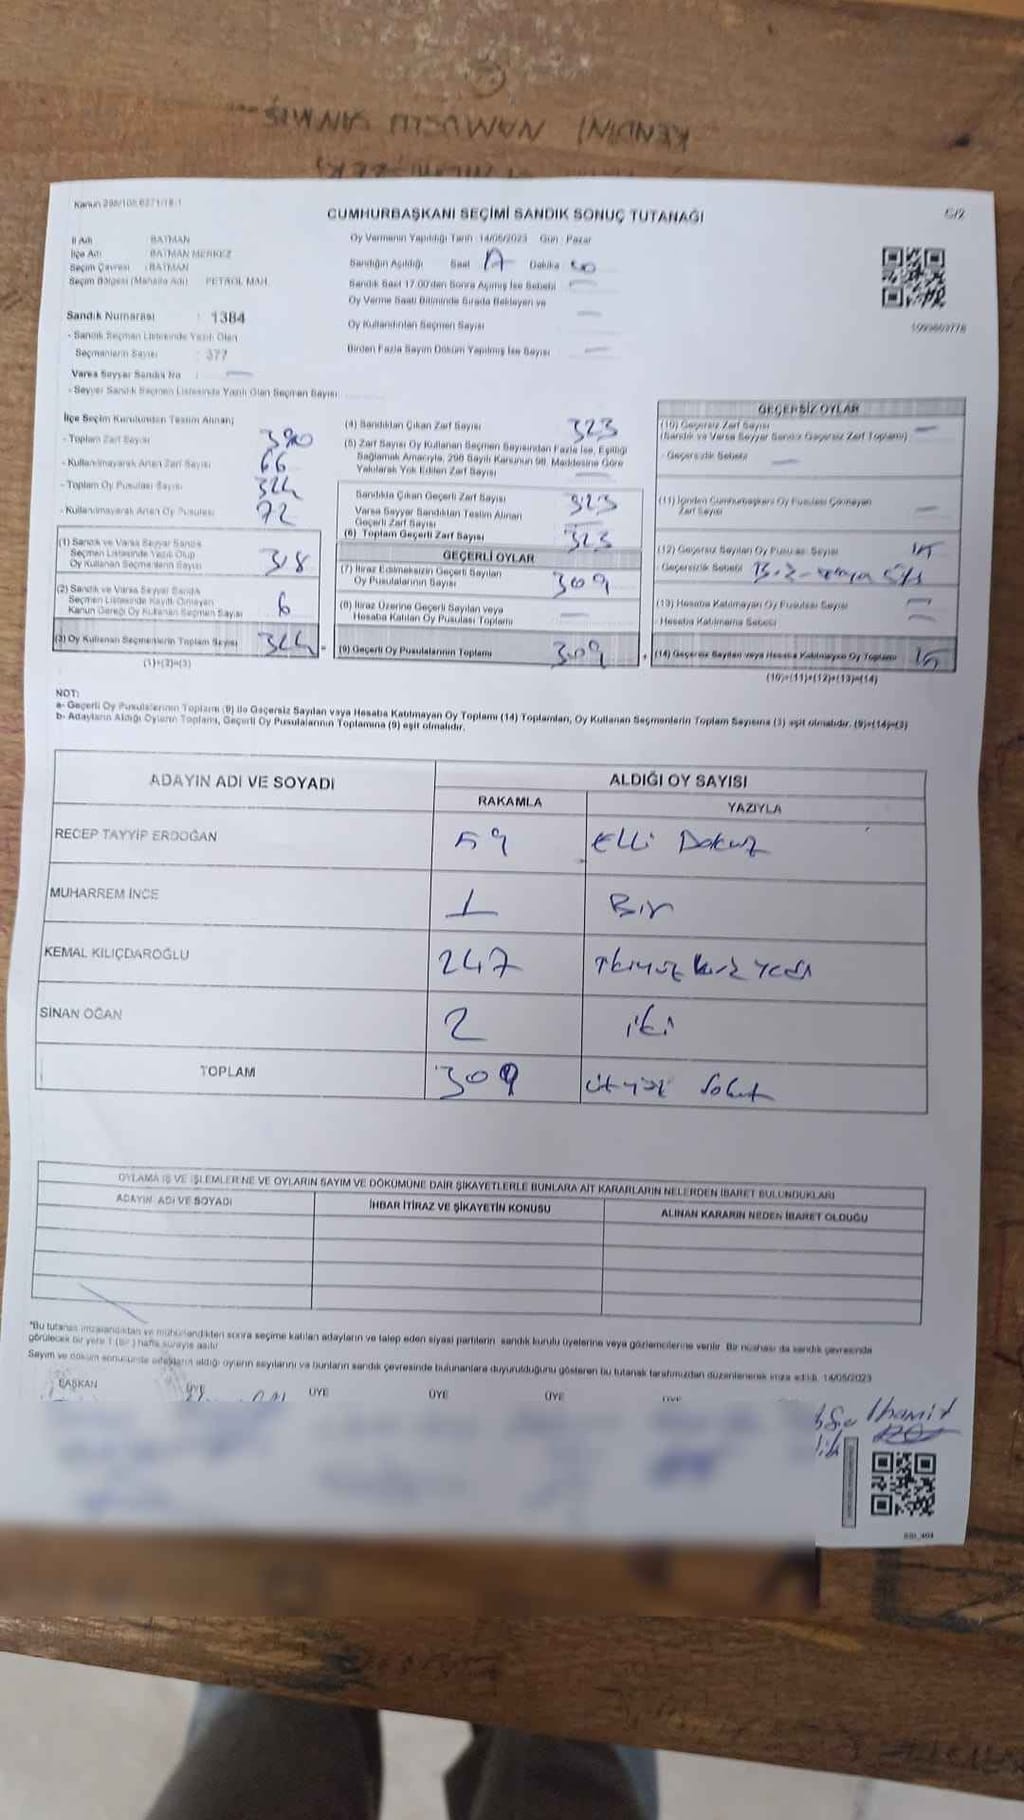 KENDİNİ NAMUSLU SANMIŞ...
Kanun 298/108,6271/18-1
CUMHURBAŞKANI SEÇİMİ SANDIK SONUÇ TUTANAĞI
İl Adı BATMAN
İlçe Adı BATMAN MERKEZ
Seçim Çevresi : BATMAN
Seçim Bölgesi (Mahalle Adı) PETROL MAH.
Sandık Numarası : 1384
- Sandık Seçmen Listesinde Yazılı Olan
Seçmenlerin Sayısı : 377
Varsa Seyyar Sandık No
- Seyyar Sandık Seçmen Listesinde Yazılı Olan Seçmen Sayısı
Oy Vermenin Yapıldığı Tarih 14/05/2023 Gün : Pazar
Sandığın Açıldığı Saat Dakika
Sandık Saat 17.00'den Sonra Açılmış İse Sebebi
Oy Verme Saati Bitiminde Sırada Bekleyen ve
Oy Kullandırılan Seçmen Sayısı
Birden Fazla Sayım Döküm Yapılmış İse Sayısı
İlçe Seçim Kurulundan Teslim Alınan;
- Toplam Zarf Sayısı 390
- Kullanılmayarak Artan Zarf Sayısı 66
- Toplam Oy Pusulası Sayısı
- Kullanılmayarak Artan Oy Pusulası 72
(1) Sandık ve Varsa Seyyar Sandık
Seçmen Listesinde Yazılı Olup
Oy Kullanan Seçmenlerin Sayısı 318
(2) Sandık ve Varsa Seyyar Sandık
Seçmen Listesinde Kayıtlı Olmayan
Kanun Gereği Oy Kullanan Seçmen Sayısı 6
(3) Oy Kullanan Seçmenlerin Toplam Sayısı 324
(1)+(2)=(3)
(4) Sandıktan Çıkan Zarf Sayısı 323
(5) Zarf Sayısı Oy Kullanan Seçmen Sayısından Fazla İse, Eşitliği
Sağlamak Amacıyla, 298 Sayılı Kanunun 98. Maddesine Göre
Yakılarak Yok Edilen Zarf Sayısı
Sandıkta Çıkan Geçerli Zarf Sayısı 323
Varsa Seyyar Sandıktan Teslim Alınan
Geçerli Zarf Sayısı
(6) Toplam Geçerli Zarf Sayısı 323
GEÇERLİ OYLAR
(7) İtiraz Edilmeksizin Geçerli Sayılan
Oy Pusulalarının Sayısı 309
(8) İtiraz Üzerine Geçerli Sayılan veya
Hesaba Katılan Oy Pusulası Toplamı
(9) Geçerli Oy Pusulalarının Toplamı 309
GEÇERSİZ OYLAR
(10) Geçersiz Zarf Sayısı
(Sandık ve Varsa Seyyar Sandık Geçersiz Zarf Toplamı)
- Geçersizlik Sebebi
(11) İçinden Cumhurbaşkanı Oy Pusulası Çıkmayan
Zarf Sayısı
(12) Geçersiz Sayılan Oy Pusulası Sayısı 15
- Geçersizlik Sebebi
(13) Hesaba Katılmayan Oy Pusulası Sayısı
- Hesaba Katılmama Sebebi
(14) Geçersiz Sayılan veya Hesaba Katılmayan Oy Toplamı 15
(10)+(11)+(12)+(13)=(14)
NOT:
a- Geçerli Oy Pusulalarının Toplamı (9) ile Geçersiz Sayılan veya Hesaba Katılmayan Oy Toplamı (14) Toplamları, Oy Kullanan Seçmenlerin Toplam Sayısına (3) eşit olmalıdır. (9)+(14)=(3)
b- Adayların Aldığı Oyların Toplamı, Geçerli Oy Pusulalarının Toplamına (9) eşit olmalıdır.
ADAYIN ADI VE SOYADI ALDIĞI OY SAYISI
RAKAMLA YAZIYLA
RECEP TAYYİP ERDOĞAN 59 Elli Dokuz
MUHARREM İNCE 1 Bir
KEMAL KILIÇDAROĞLU 247 ikiyüz kırk yedi
SİNAN OĞAN 2 iki
TOPLAM 309 üçyüz dokuz
OYLAMA İŞ VE İŞLEMLERİNE VE OYLARIN SAYIM VE DÖKÜMÜNE DAİR ŞİKAYETLERLE BUNLARA AİT KARARLARIN NELERDEN İBARET BULUNDUKLARI
ADAYIN ADI VE SOYADI İHBAR İTİRAZ VE ŞİKAYETİN KONUSU ALINAN KARARIN NEDEN İBARET OLDUĞU
*Bu tutanak imzalandıktan ve mühürlendikten sonra seçime katılan adayların ve talep eden siyasi partilerin sandık kurulu üyelerine veya gözlemcilerine verilir. Bir nüshası da sandık çevresinde
görülecek bir yere 1 (Bir) hafta süreyle asılır
Sayım ve döküm sonucunda adayların aldığı oyların sayılarını ve bunların sandık çevresinde bulunanlara duyurulduğunu gösteren bu tutanak tarafımızdan düzenlenerek imza edildi. 14/05/2023
BAŞKAN ÜYE ÜYE ÜYE ÜYE ÜYE